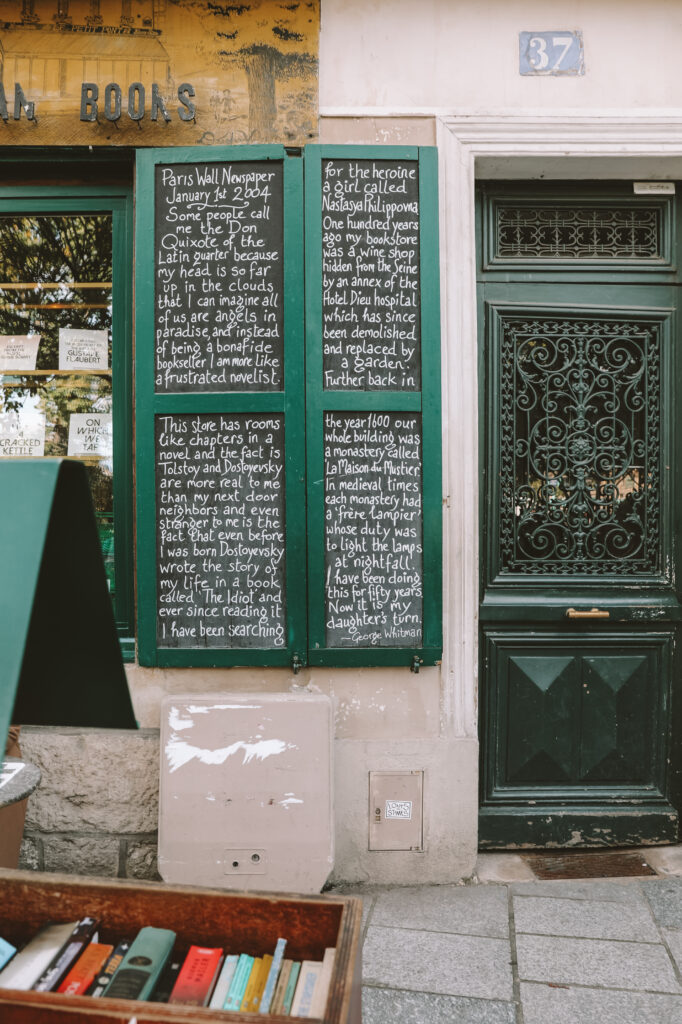 LE PETIT PONT
AN BOOKS
37
Paris Wall Newspaper
January 1st 2004
Some people call
me the Don
Quixote of the
Latin quarter because
my head is so far
up in the clouds
that I can imagine all
of us are angels in
paradise, and instead
of being a bonafide
bookseller I am more like
a frustrated novelist.
This store has rooms
like chapters in a
novel and the fact is
Tolstoy and Dostoyevsky
are more real to
me than my next door
neighbors and even
stranger to me is the
fact that even before
I was born Dostoyevsky
wrote the story of
my life in a book
called 'The Idiot' and
ever since reading it
I have been searching
for the heroine
a girl called
Nastasya Philipovna.
One hundred years
ago my bookstore
was a wine shop
hidden from the Seine
by an annex of the
Hotel Dieu hospital
which has since
been demolished
and replaced by
a garden.
Further back in
the year 1600 our
whole building was
a monastery called
'La Maison du Mustier.'
In medieval times
each monastery had
a 'frère lampier'
whose duty was
to light the lamps
at nightfall.
I have been doing
this for fifty years
Now it is my
daughter's turn.
-George Whitman
GUSTAVE
FLAUBERT
CRACKED
KETTLE
ON
WHICH
WE
TAP